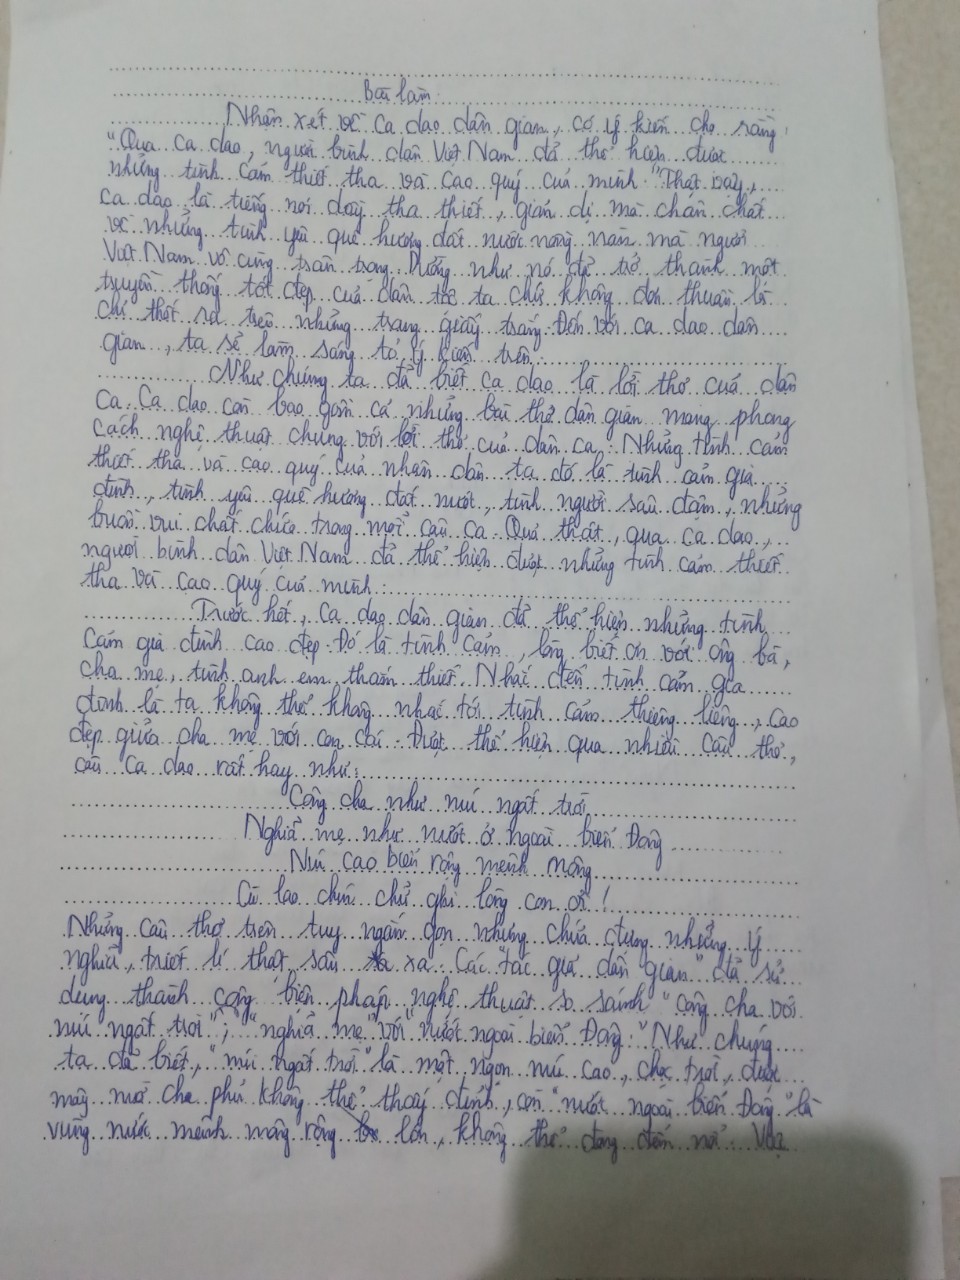 Bài làm
Nhận xét về ca dao dân gian, có ý kiến cho rằng:
"Qua ca dao, người bình dân Việt Nam đã thể hiện được
những tình cảm thiết tha và cao quý của mình." Thật vậy,
ca dao là tiếng nói đầy tha thiết, giản dị mà chân chất
về những tình yêu quê hương đất nước nồng nàn mà người
Việt Nam vô cùng trân trọng. Dường như nó đã trở thành một
truyền thống tốt đẹp của dân tộc ta chứ không đơn thuần là
chỉ thốt ra trên những trang giấy trắng. Đến với ca dao dân
gian, ta sẽ làm sáng tỏ ý kiến trên.
Như chúng ta đã biết ca dao là lời thơ của dân
ca. Ca dao còn bao gồm cả những bài thơ dân gian mang phong
cách nghệ thuật chung với lời thơ của dân ca. Những tình cảm
thiết tha và cao quý của nhân dân ta đó là tình cảm gia
đình, tình yêu quê hương đất nướt, tình người sâu đậm, những
buồn vui chất chứa trong mỗi câu ca. Quả thật, qua ca dao,
người bình dân Việt Nam đã thể hiện được những tình cảm thiết
tha và cao quý của mình.
Trước hết, ca dao dân gian đã thể hiện những tình
cảm gia đình cao đẹp. Đó là tình cảm, lòng biết ơn với ông bà,
cha mẹ, tình anh em thắm thiết. Nhắc đến tình cảm gia
đình là ta không thể không nhắc tới tình cảm thiêng liêng, cao
đẹp giữa cha mẹ với con cái. Đượt thể hiện qua nhiều câu thơ,
câu ca dao rất hay như:
Công cha như núi ngất trời
Nghĩa mẹ như nướt ở ngoài biển Đông
Núi cao biển rộng mênh mông
Cù lao chín chữ ghi lòng con ơi!
Những câu thơ trên tuy ngắn gọn nhưng chứa đựng những ý
nghĩa, triết lí thật sâu xa. Các "tác giả dân gian" đã sử
dụng thành công biện pháp nghệ thuật so sánh "công cha với
núi ngất trời"; "nghĩa mẹ "với" nướt ngoài biển Đông." Như chúng
ta đã biết, "núi ngất trời" là một ngọn núi cao, chọc trời, được
mây mờ che phủ không thể thấy đỉnh, còn "nướt ngoài biển Đông" là
vùng nước mênh mông rộng lớn, không thể đong đếm nổi. Vừa